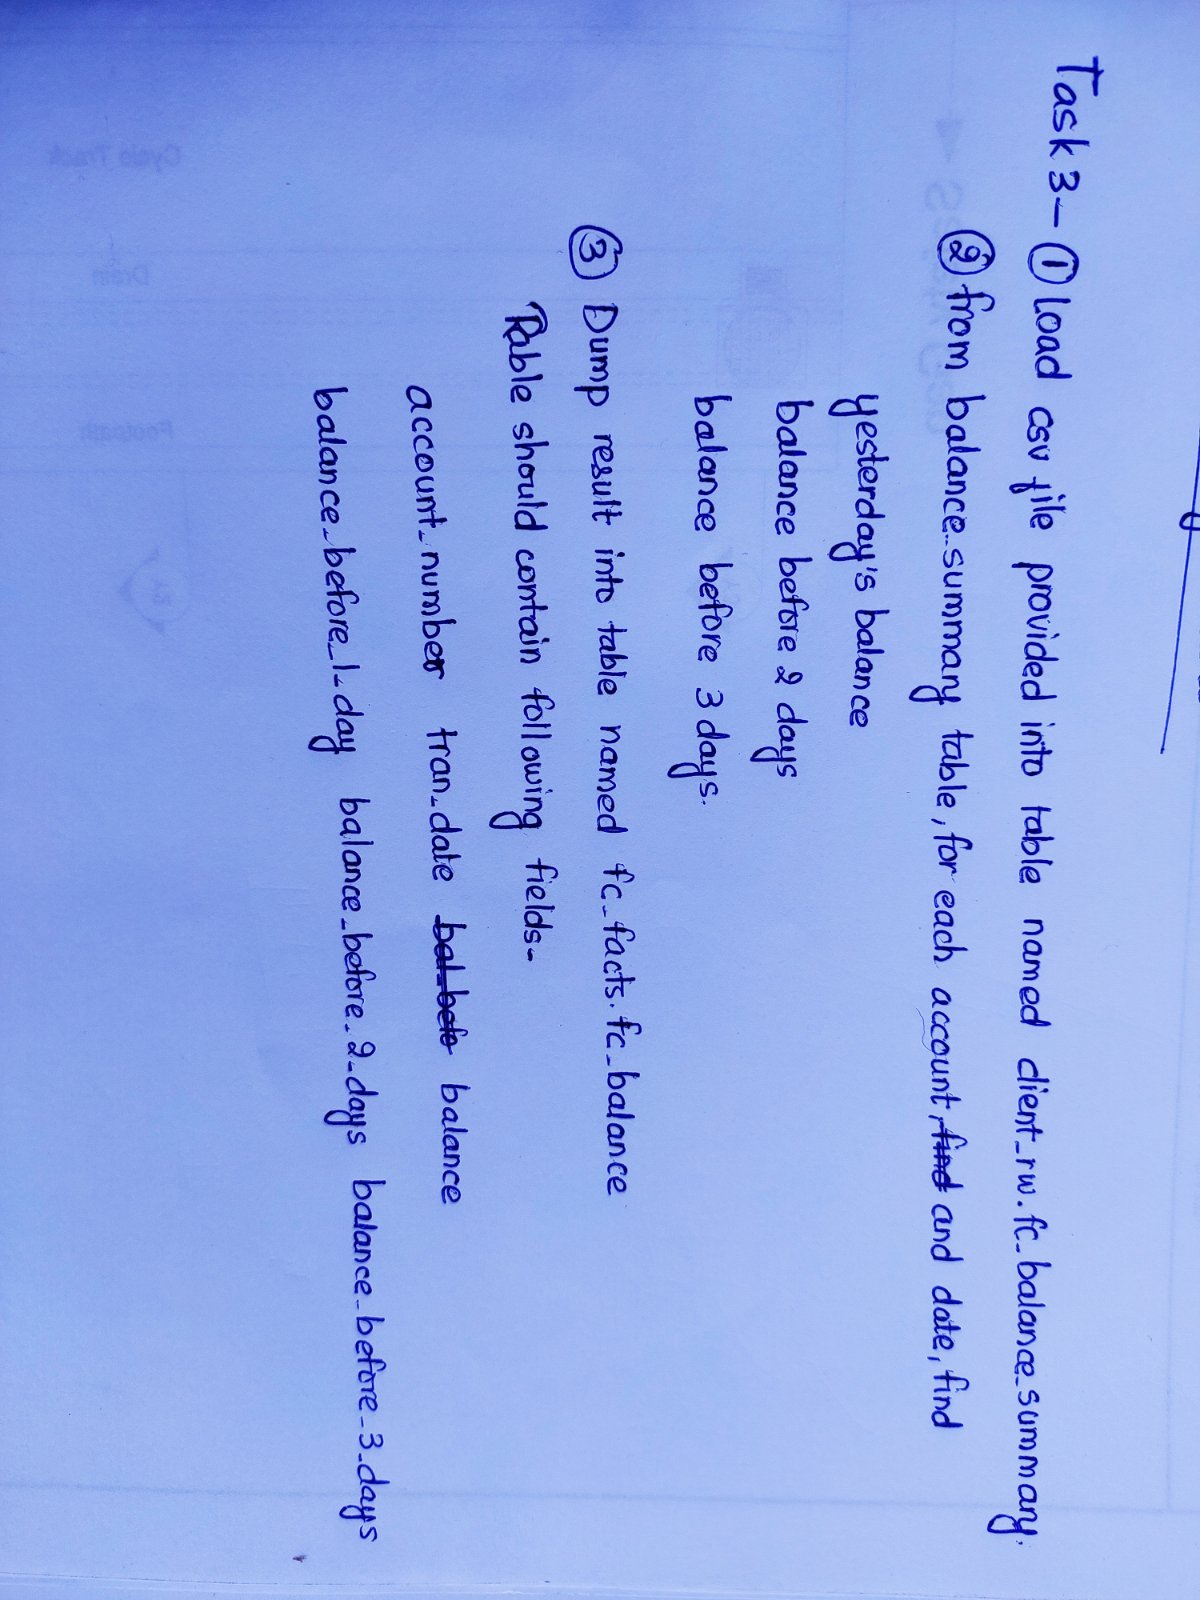 Task 3- ① Load csv file provided into table named client_rw.fc_balance_summary.
② from balance_summary table, for each account, find and date, find
yesterday's balance
balance before 2 days
balance before 3 days.
③ Dump result into table named fc_facts.fc_balance
Table should contain following fields-
account_number tran_date bal_befo balance
balance_before_1_day balance_before_2_days balance_before_3_days
Cycle Track
Drain
Footpath